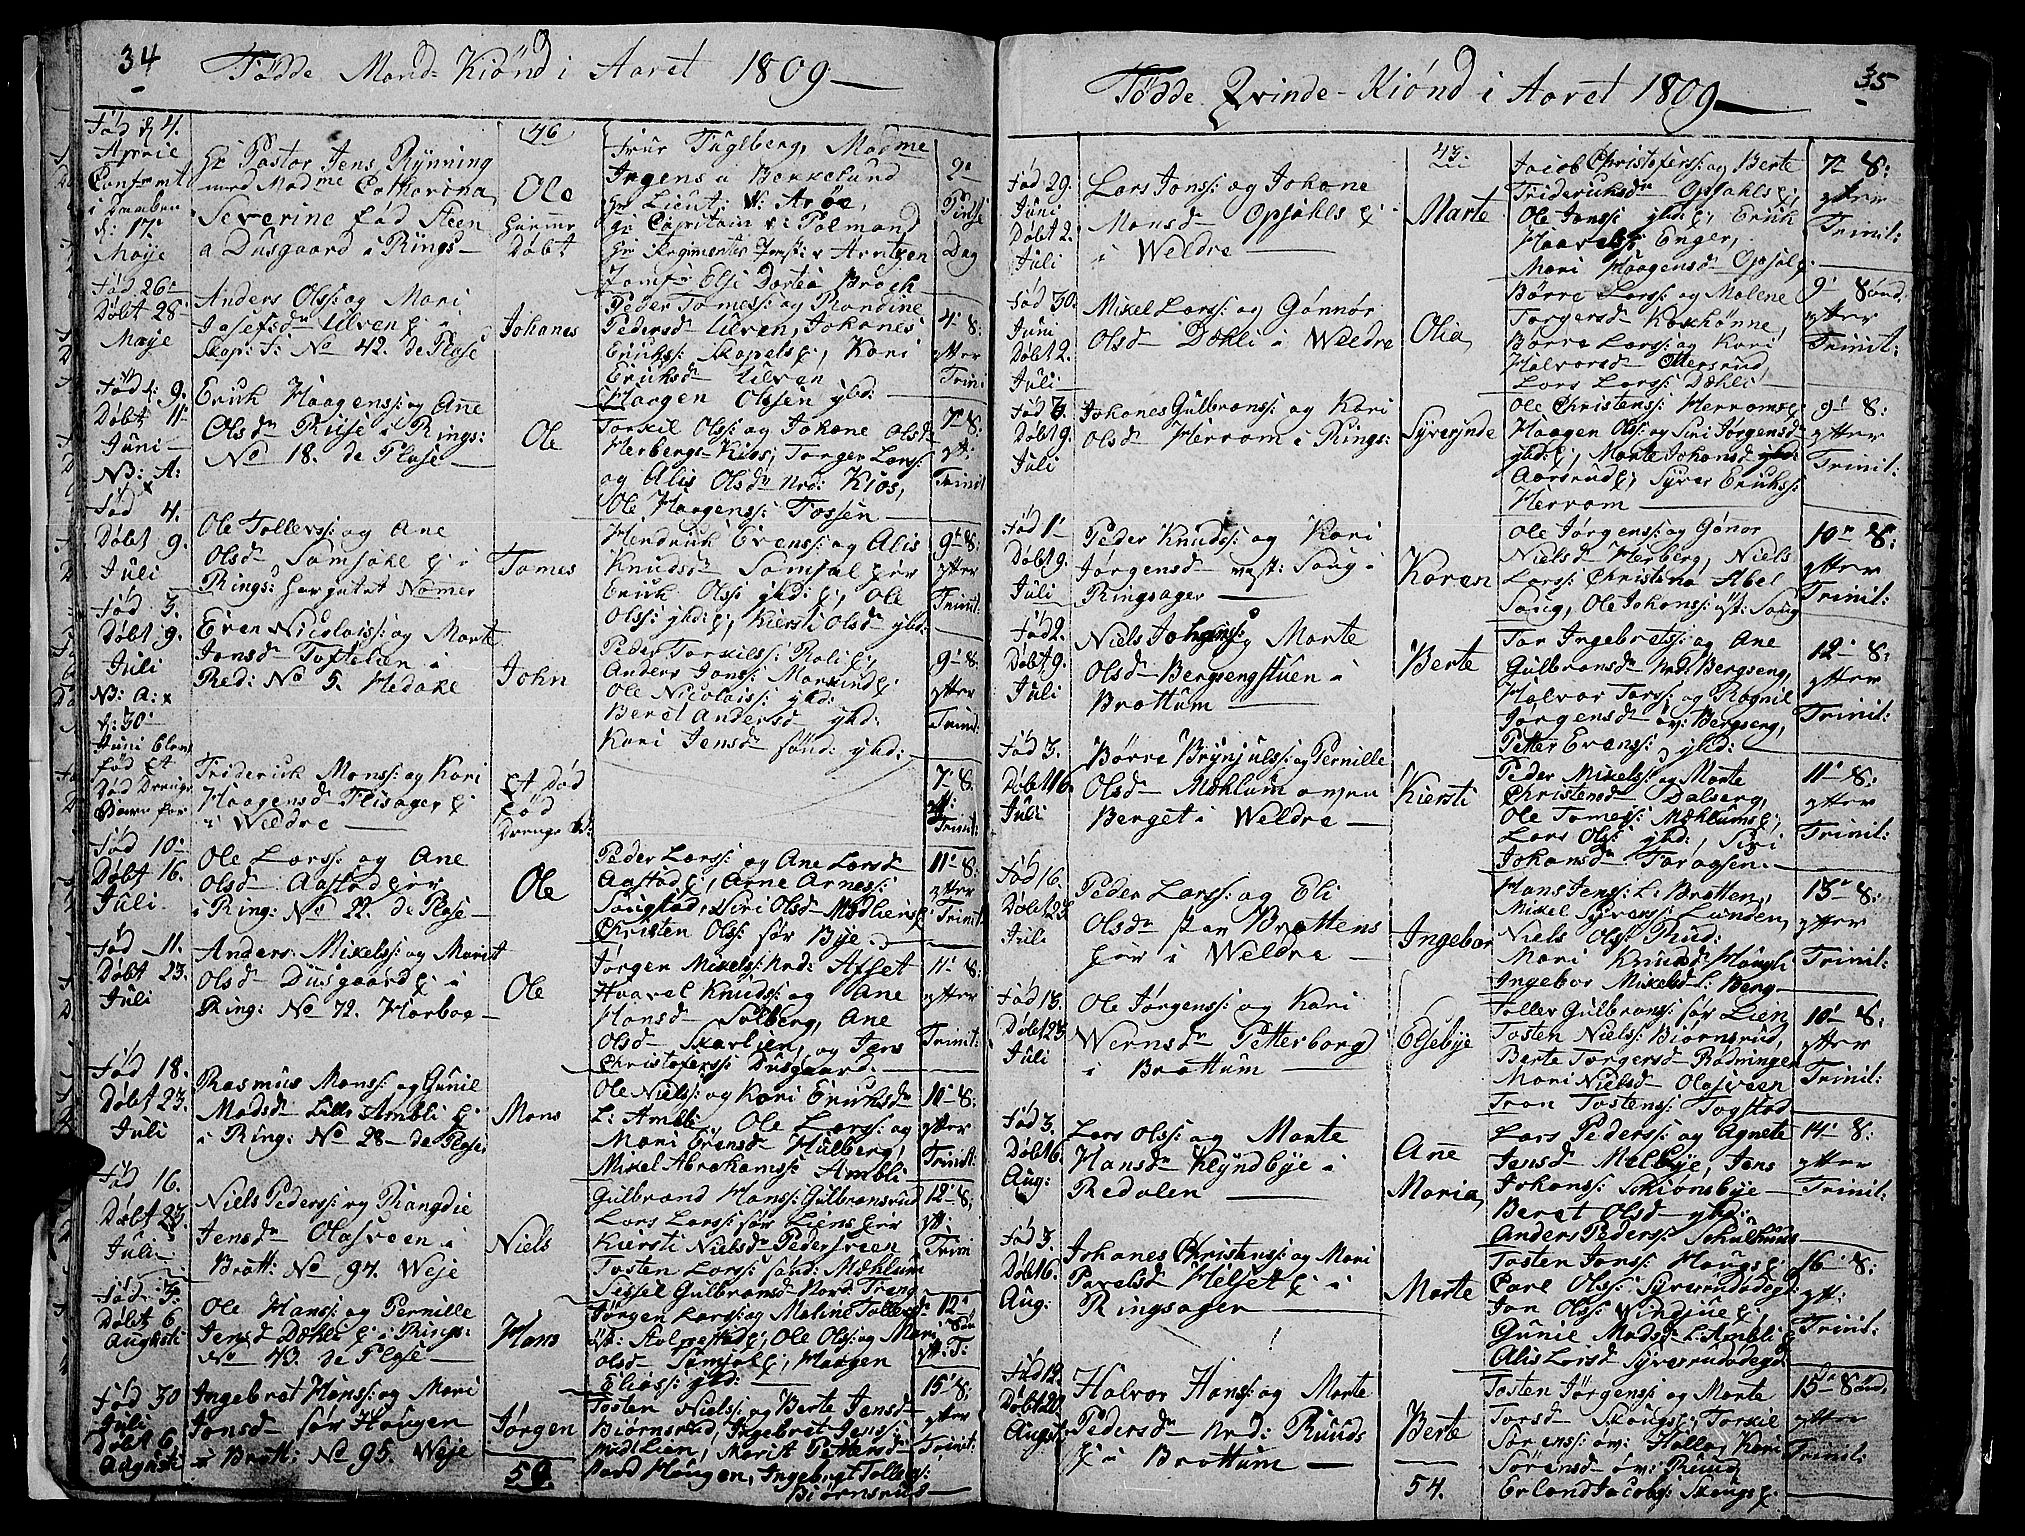 34
Fødde Mand-Kiønd i Aaret 1809
Fød d 4.
Aprile
Confirmt
d: 17
Moye
Hr Pastor Jens Rynning
med Madme Catharina
Severine fød Steen
a Dusgaard i Rings-
46
Ole
Hiemme
Døbt
Frue Fuglberg, Madme
Irgens a Berkelund
Hr Lieut: v: Arøe,
Hr Capitain v: Polmand
Hr Regimentes v Arntzen
Jomfr Elsi Dortea Broch
2
Pintse
Dag
Fød 26
Døbt 28
Moje
Anders Olss: og Mari
Josefsd Ulven i
Skap: T: No 42. de Plose
Johanes
Peder Tomess: og Randine
Pedersd Ulven, Johanes
Erickss: Skapels, Kari
Ericksd Ulven
4 8:
ytter
Trin:
Fød d: 9.
Døbt 11
Juni
N3: A:
Erick Haagenss: og Ane
Olsd Ruse i Rings:
No 18. de Plose
Ole
Haagen Olssen ybd:
Torkil Olss: og Johane Olsd
Herbergs-Kios, Torger Larss:
og Alis Olsd Nrd: Kios,
Ole Haagenss: Fossen
7 8:
yt:
Trinit
Fød 4.
Døbt 9.
Juli
Ole Tollerss: og Ane
Olsd Samsahl i
Rings: Tomes
Hendrick Evenss: og Alis
Knudsd Samsal
Erick Olss: ybd:, Ole
Olss: ybd:, Kiersti Olsd ybd:
9 8:
ytter
Trinit:
Fød 3.
Døbt 9.
Juli
N3: A: x
Even Nicolaiss: og Marte
Jonsd Toftelien i
Red: No 5. Hedake
John
Peder Torkilss: Roli,
Anders Jonss: Markind
Ole Nicolaiss: ybd:
Beret Andersd ybd:
Kari Jensd sønd: ybd:
9 8:
ytter
Trinit:
d: 30
Juni blev
fød et
Død Drenge
Barn for
Friderick Monss: og Kari
Haagensd Flisager
i Weldre
Et Død
fød
Drenge
7 8.
yt:
Trinit:
Fød 10
Døbt 16.
Juli
Ole Larss: og Ane
Olsd Aastad
i Ring: No 22. de Plose
Ole
Peder Larss: og Ane Larsd
Aastad, Arne Arness:
Saugstad, Siri Olsd Mælien
Christen Olss: sør Bye
11 8:
ytter
Trinit
Fød 11.
Døbt 23.
Juli
Anders Mikelss: og Marit
Olsd Dusgaard i
Ring: No 72. Horboe
Ole
Jørgen Mikelss: Nrd: Afset
Hvavel Knudss: og Ane
Hansd Solberg, Ane
Olsd Skarlien, og Jens
Christoferss: Dusgaard
11 8:
ytter
Trinit:
Fød 18.
Døbt 23.
Juli
Rasmus Monss: og Gunil
Madsd Lille Ambli
i Ring: No 28 de Plose
Mons
Ole Nielss: og Kari Ericksd
L: Ambli, Ole Larss: og
Mari Evensd Hulberg,
Mikel Abrahamss: Ambli
10 8:
ytter
Trinit:
Fød 16.
Døbt 23.
Juli
Niels Pederss: og Rangdie
Jensd Olasveen i
Brøtt: No 94. Weje
Niels
Gulbrand Hanss: Gulbransrud
Lars Larss: sør Liens
Kiersti Nielsd Pedersveen
Tosten Larss: sønd: Mæklum
Sissel Gulbransd Nord: Frang
12 8,
yt.
Trin
Fød 3.
Døbt 6
Augusti
Ole Hanss: og Pernille
Jensd Dæhli i Rings:
No 43. de Plose
Hans
Jørgen Larss: og Maline Tollersd
øst: Stolpestad, Ole Olss: og Mari
Olsd Samsal, Haagen
Eliass: ybd:
12
Søn
yt. T:
Fød 30
Juli
Døbt 6
Augusti
Ingebret Hanss: og Mari
Jonsd sør Haugen
i Brøtt: No 95. Weje
Jørgen
50
Tosten Nielss: og Berte Jensd
Biørnsrud, Ingebret Jenss:
Mid Lien, Marit Pettersd
Nord Haugen, Ingebret Tollerss:
Biørnsrud
15 8:
ytter
Trinit:
35
Fødde Qvinde-Kiønd i Aaret 1809
Fød 29.
Juni
Døbt 2.
Juli
Lars Jonss: og Johane
Monsd Opsahls
i Weldre
43.
Marte
Jacob Christoferss: og Berte
Fridericksd Opsahls
Ole Jonss: ybd:, Erick
Haavelss: Enger,
Mari Haagensd Opsal
7 8:
ytter
Trinit:
Fød 30.
Juni
Døbt 2.
Juli
Mikel Larss: og Gønnør
Olsd Dæhli i Weldre
Olia
Børre Larss: og Malene
Torgersd Koxhønne,
Børre Larss: og Kari
Halvorsd Ottersrud,
Lars Larss: Dæhli
9 Sønd:
ytter
Trinit:
Fød 3.
Døbt 9.
Juli
Johanes Gulbranss: og Kari
Olsd Herrom i Rings:
Syverynde
Ole Christenss: Herroms
Haagen Olss: og Siri Jørgensd
ybd:, Marte Johansd
Aarsrud, Syver Erickss:
Herrom
9 8:
ytter
Trinit:
Fød 1
Døbt 9.
Juli
Peder Knudss: og Kari
Jørgensd vest: Saug i
Ringsager
Karen
Ole Jørgenss: og Gønor
Nielsd Herberg, Niels
Larss: Christina Abel
Saug, Ole Johanss: øst: Saug
10 8:
ytter
Trinit:
Fød 2.
Døbt 9.
Juli
Niels Johanss: og Marte
Olsd Bergsengstuen i
Brøttum
Berte
Tor Ingebretss: og Ane
Gulbransd Nrd: Bergseng,
Halvor Torss: og Rognil
Jørgensd øv: Bergseng,
Petter Evenss: ybd:
12 8:
ytter
Trinit:
Fød 3.
Døbt 16.
Juli
Børre Brynjulss: og Pernille
Olsd Mæklum
Berget i Weldre
Kiersti
Peder Mikelss: og Marte
Christensd Dalberg,
Ole Tomess: Mæklums,
Lars Olss: ybd:, Siri
Johansd Faraasen
11 8:
ytter
Trinit:
Fød 16.
Døbt 23.
Juli
Peder Larss: og Eli
Olsd Brøttens
i Weldre
Ingebor
Hans Jenss: L: Brøtten,
Mikel Syverss: Lunden,
Niels Olss: Rud:
Mari Knudsd Haugli
Ingebor Mikelsd L: Berg
13 8:
ytter
Trinit:
Fød 13.
Døbt 23.
Juli
Ole Jørgenss: og Kari
Wernsd Petterborg
i Brøttum
Elsebye
Toller Gulbranss: sør Lien
Tosten Nielss: Biørnsrud,
Berte Torgersd Rødningen
Mari Nielsd Olasveen
Tron Tostenss: Fogstad
10 8:
ytter
Trinit:
Fød 3.
Døbt 6.
Aug:
Lars Olss: og Marte
Hansd Klyndbye i
Redalen
Ane
Maria
Lars Pederss: og Agnete
Jensd Melbye, Jens
Johanss: Skiønsbye
Beret Olsd ybd:
Anders Pederss: Schulhuus
14 8:
ytter
Trinit:
Fød 3.
Døbt 6.
Aug:
Johanes Christenss: og Mari
Pavelsd Helset i
Ringsager
Marte
Tosten Jonss: Haugs
Carl Olss: Syversrudødegd
Jon Olss: Windjue
Gunil Madsd L: Ambli
Alis Larsd Syversrudødegd
16 8:
yt:
Trinit:
Fød 12.
Døbt 20.
August
Halvor Hanss: og Marte
Pedersd Nrd: Ruuds
i Brøttum
Berte
54.
Tosten Jørgenss: og Marte
Torsd Skougs, Torkil
Sørenss: øv: Holle, Kari
Sørensd øv: Ruud,
Erland Jacobss: Skougs
15 Sønd,
ytter
Trinit: